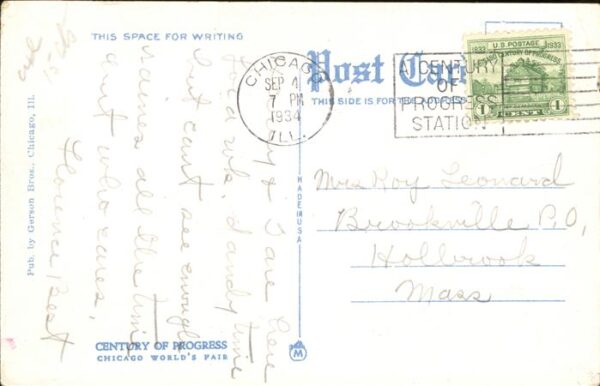 THIS SPACE FOR WRITING
Post Card
THIS SIDE IS FOR THE ADDRESS
CHICAGO
SEP 4
7 PM
1934
ILL.
A CENTURY
OF
PROGRESS
STATION
U.S. POSTAGE
1833 1933
CENTURY OF PROGRESS
1 CENT 1
& I are here
for a wk. dandy time
but can't see enough
raines all the time
who cares,
Florence Best
Mrs Roy Leonard
Brookville P.O,
Holbrook
Mass
MADE IN USA
Pub. by Gerson Bros., Chicago, Ill.
CENTURY OF PROGRESS
CHICAGO WORLD'S FAIR
M